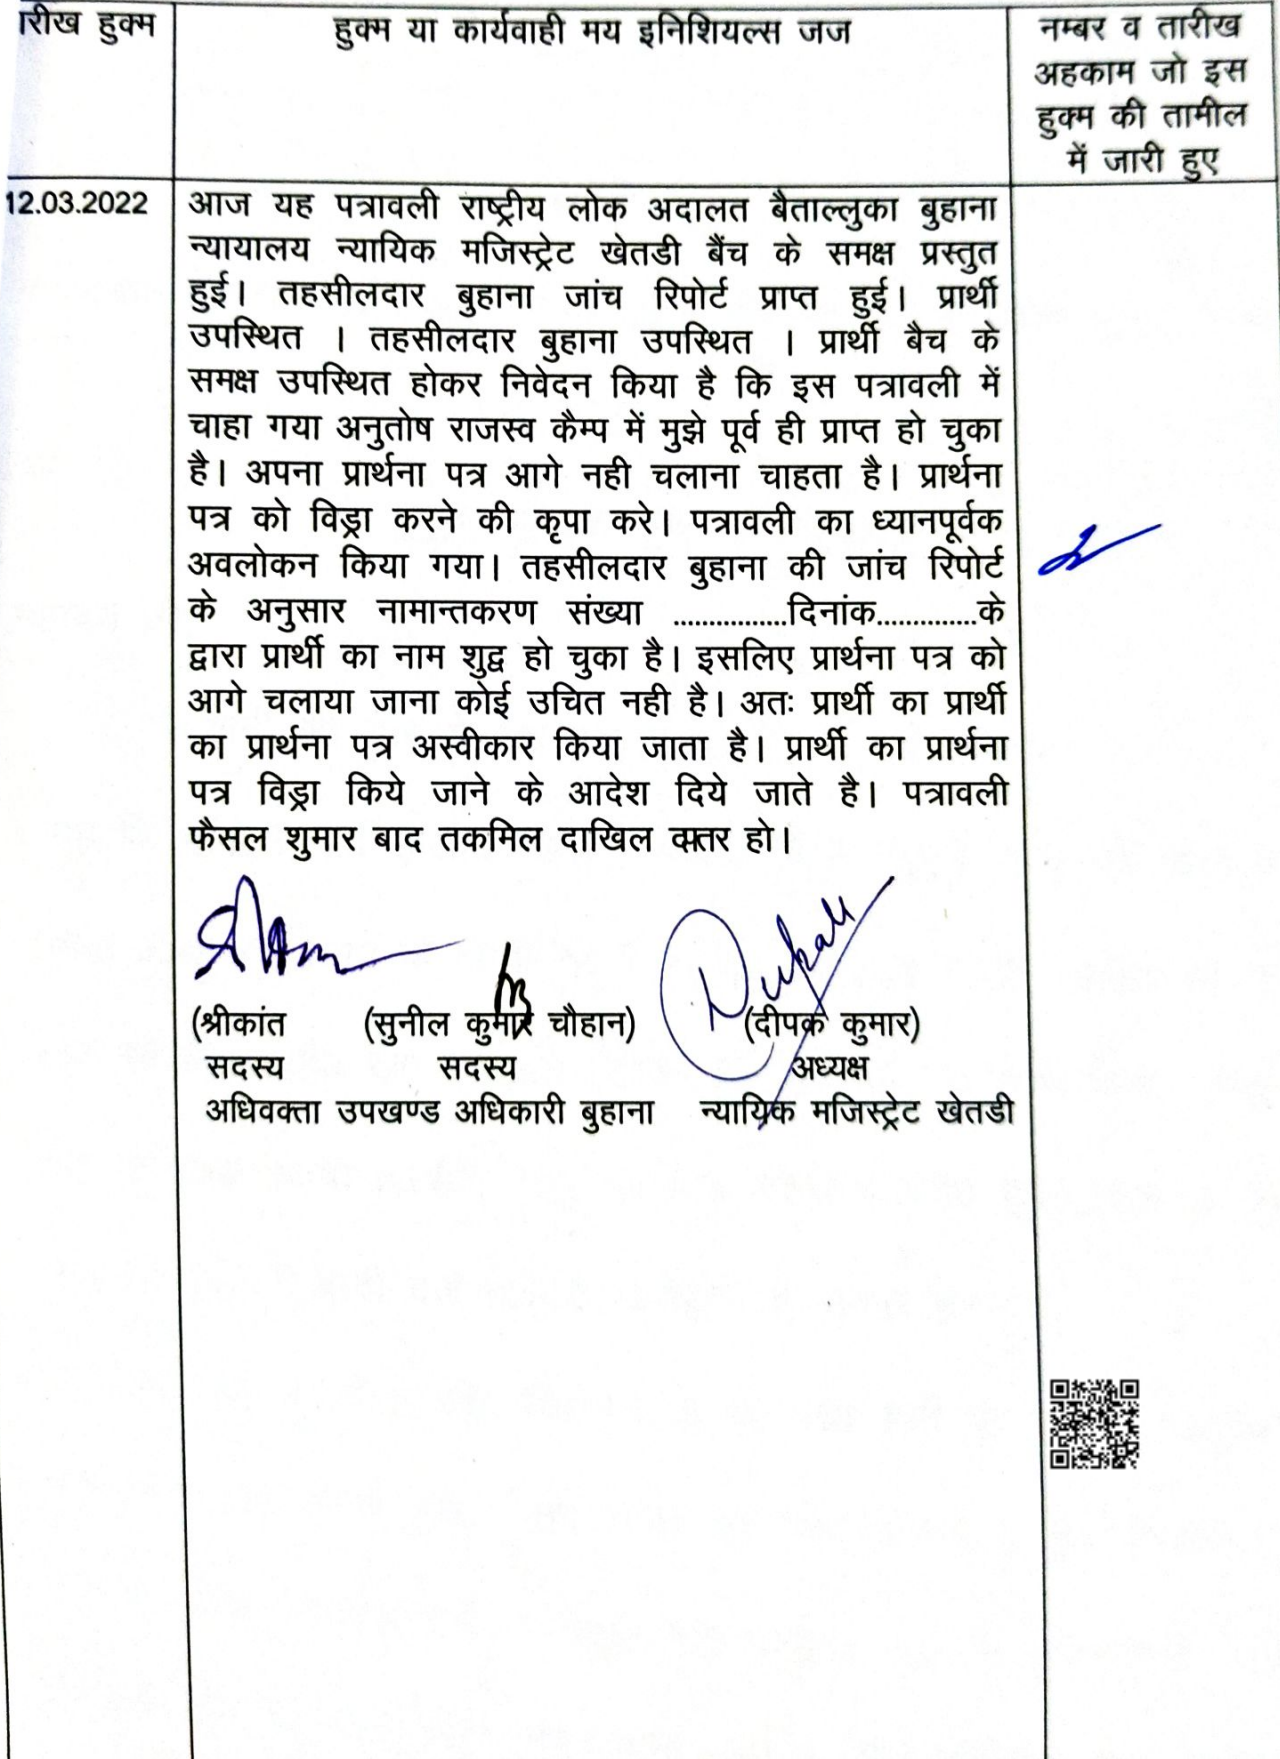 ारीख हुक्म
हुक्म या कार्यवाही मय इनिशियल्स जज
नम्बर व तारीख
अहकाम जो इस
हुक्म की तामील
में जारी हुए
12.03.2022
आज यह पत्रावली राष्ट्रीय लोक अदालत बैताल्लुका बुहाना
न्यायालय न्यायिक मजिस्ट्रेट खेतडी बैंच के समक्ष प्रस्तुत
हुई। तहसीलदार बुहाना जांच रिपोर्ट प्राप्त हुई। प्रार्थी
उपस्थित । तहसीलदार बुहाना उपस्थित । प्रार्थी बैच के
समक्ष उपस्थित होकर निवेदन किया है कि इस पत्रावली में
चाहा गया अनुतोष राजस्व कैम्प में मुझे पूर्व ही प्राप्त हो चुका
है। अपना प्रार्थना पत्र आगे नही चलाना चाहता है। प्रार्थना
पत्र को विड्रा करने की कृपा करे। पत्रावली का ध्यानपूर्वक
अवलोकन किया गया। तहसीलदार बुहाना की जांच रिपोर्ट
के अनुसार नामान्तकरण संख्या ................दिनांक..............के
द्वारा प्रार्थी का नाम शुद्व हो चुका है। इसलिए प्रार्थना पत्र को
आगे चलाया जाना कोई उचित नही है। अतः प्रार्थी का प्रार्थी
का प्रार्थना पत्र अस्वीकार किया जाता है। प्रार्थी का प्रार्थना
पत्र विड्रा किये जाने के आदेश दिये जाते है। पत्रावली
फैसल शुमार बाद तकमिल दाखिल दफ्तर हो।
(श्रीकांत (सुनील कुमार चौहान) (दीपक कुमार)
सदस्य सदस्य अध्यक्ष
अधिवक्ता उपखण्ड अधिकारी बुहाना न्यायिक मजिस्ट्रेट खेतडी